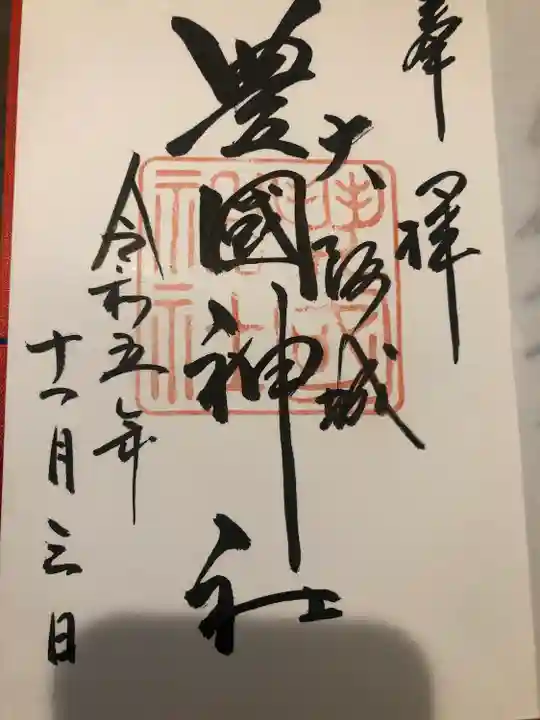 奉拝
大阪城
豊國神社
令和五年
十一月三日